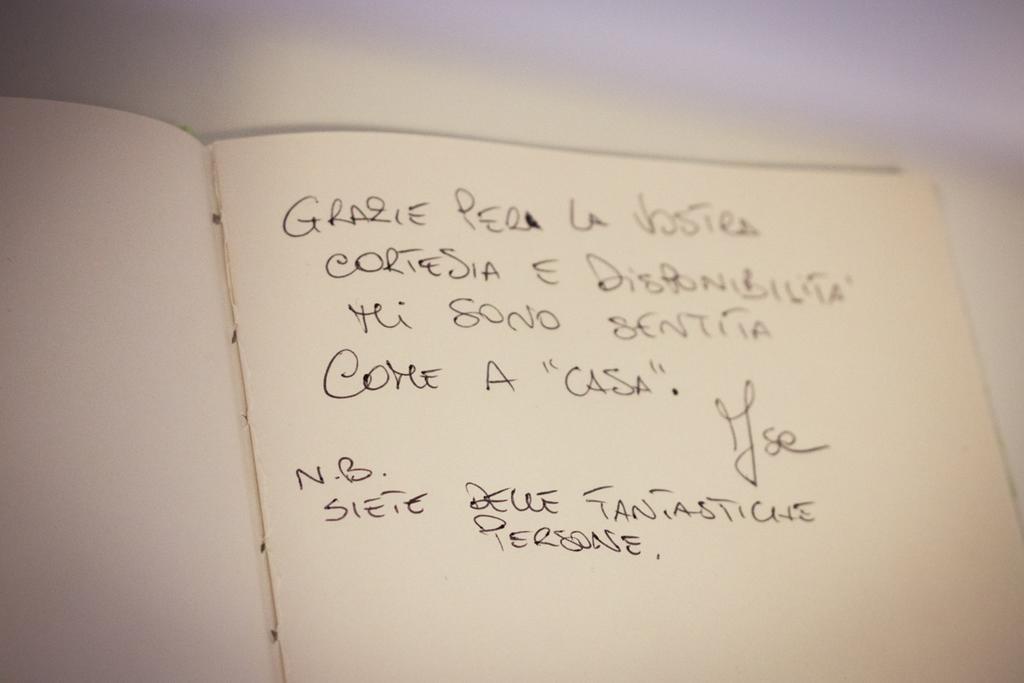 GRAZIE PER LA VOSTRA
CORTESIA E DISPONIBILITA'
MI SONO SENTITA
COME A "CASA".
Ise
N.B.
SIETE DELLE FANTASTICHE
PERSONE.